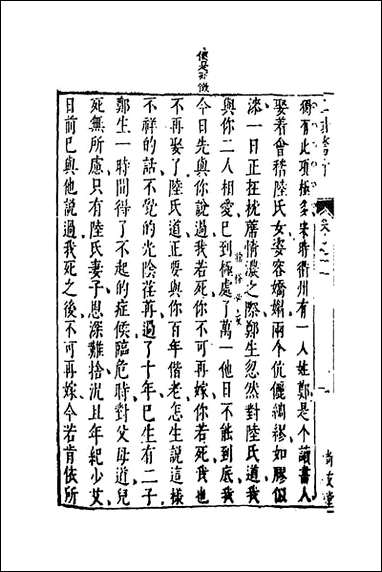 二刻驚奇
卷之十一
尚友堂
獨有此項極多宋時衢州有一人姓鄭是个讀書人
娶着會稽陸氏女姿容嬌媚兩個伉儷綢繆如膠似
漆一日正在枕席情濃之際鄭生忽然對陸氏道我
與你二人相愛已到極處了萬一他日不能到底我
今日先與你說過我若死你不可再嫁你若死我也
不再娶了陸氏道正要與你百年偕老怎生說這樣
不祥的話不覺的光陰荏苒過了十年已生有二子
鄭生一時間得了不起的症候臨危時對父母道兒
死無所慮只有陸氏妻子恩深難捨況且年紀少艾
日前已與他說過我死之後不可再嫁今若肯依所